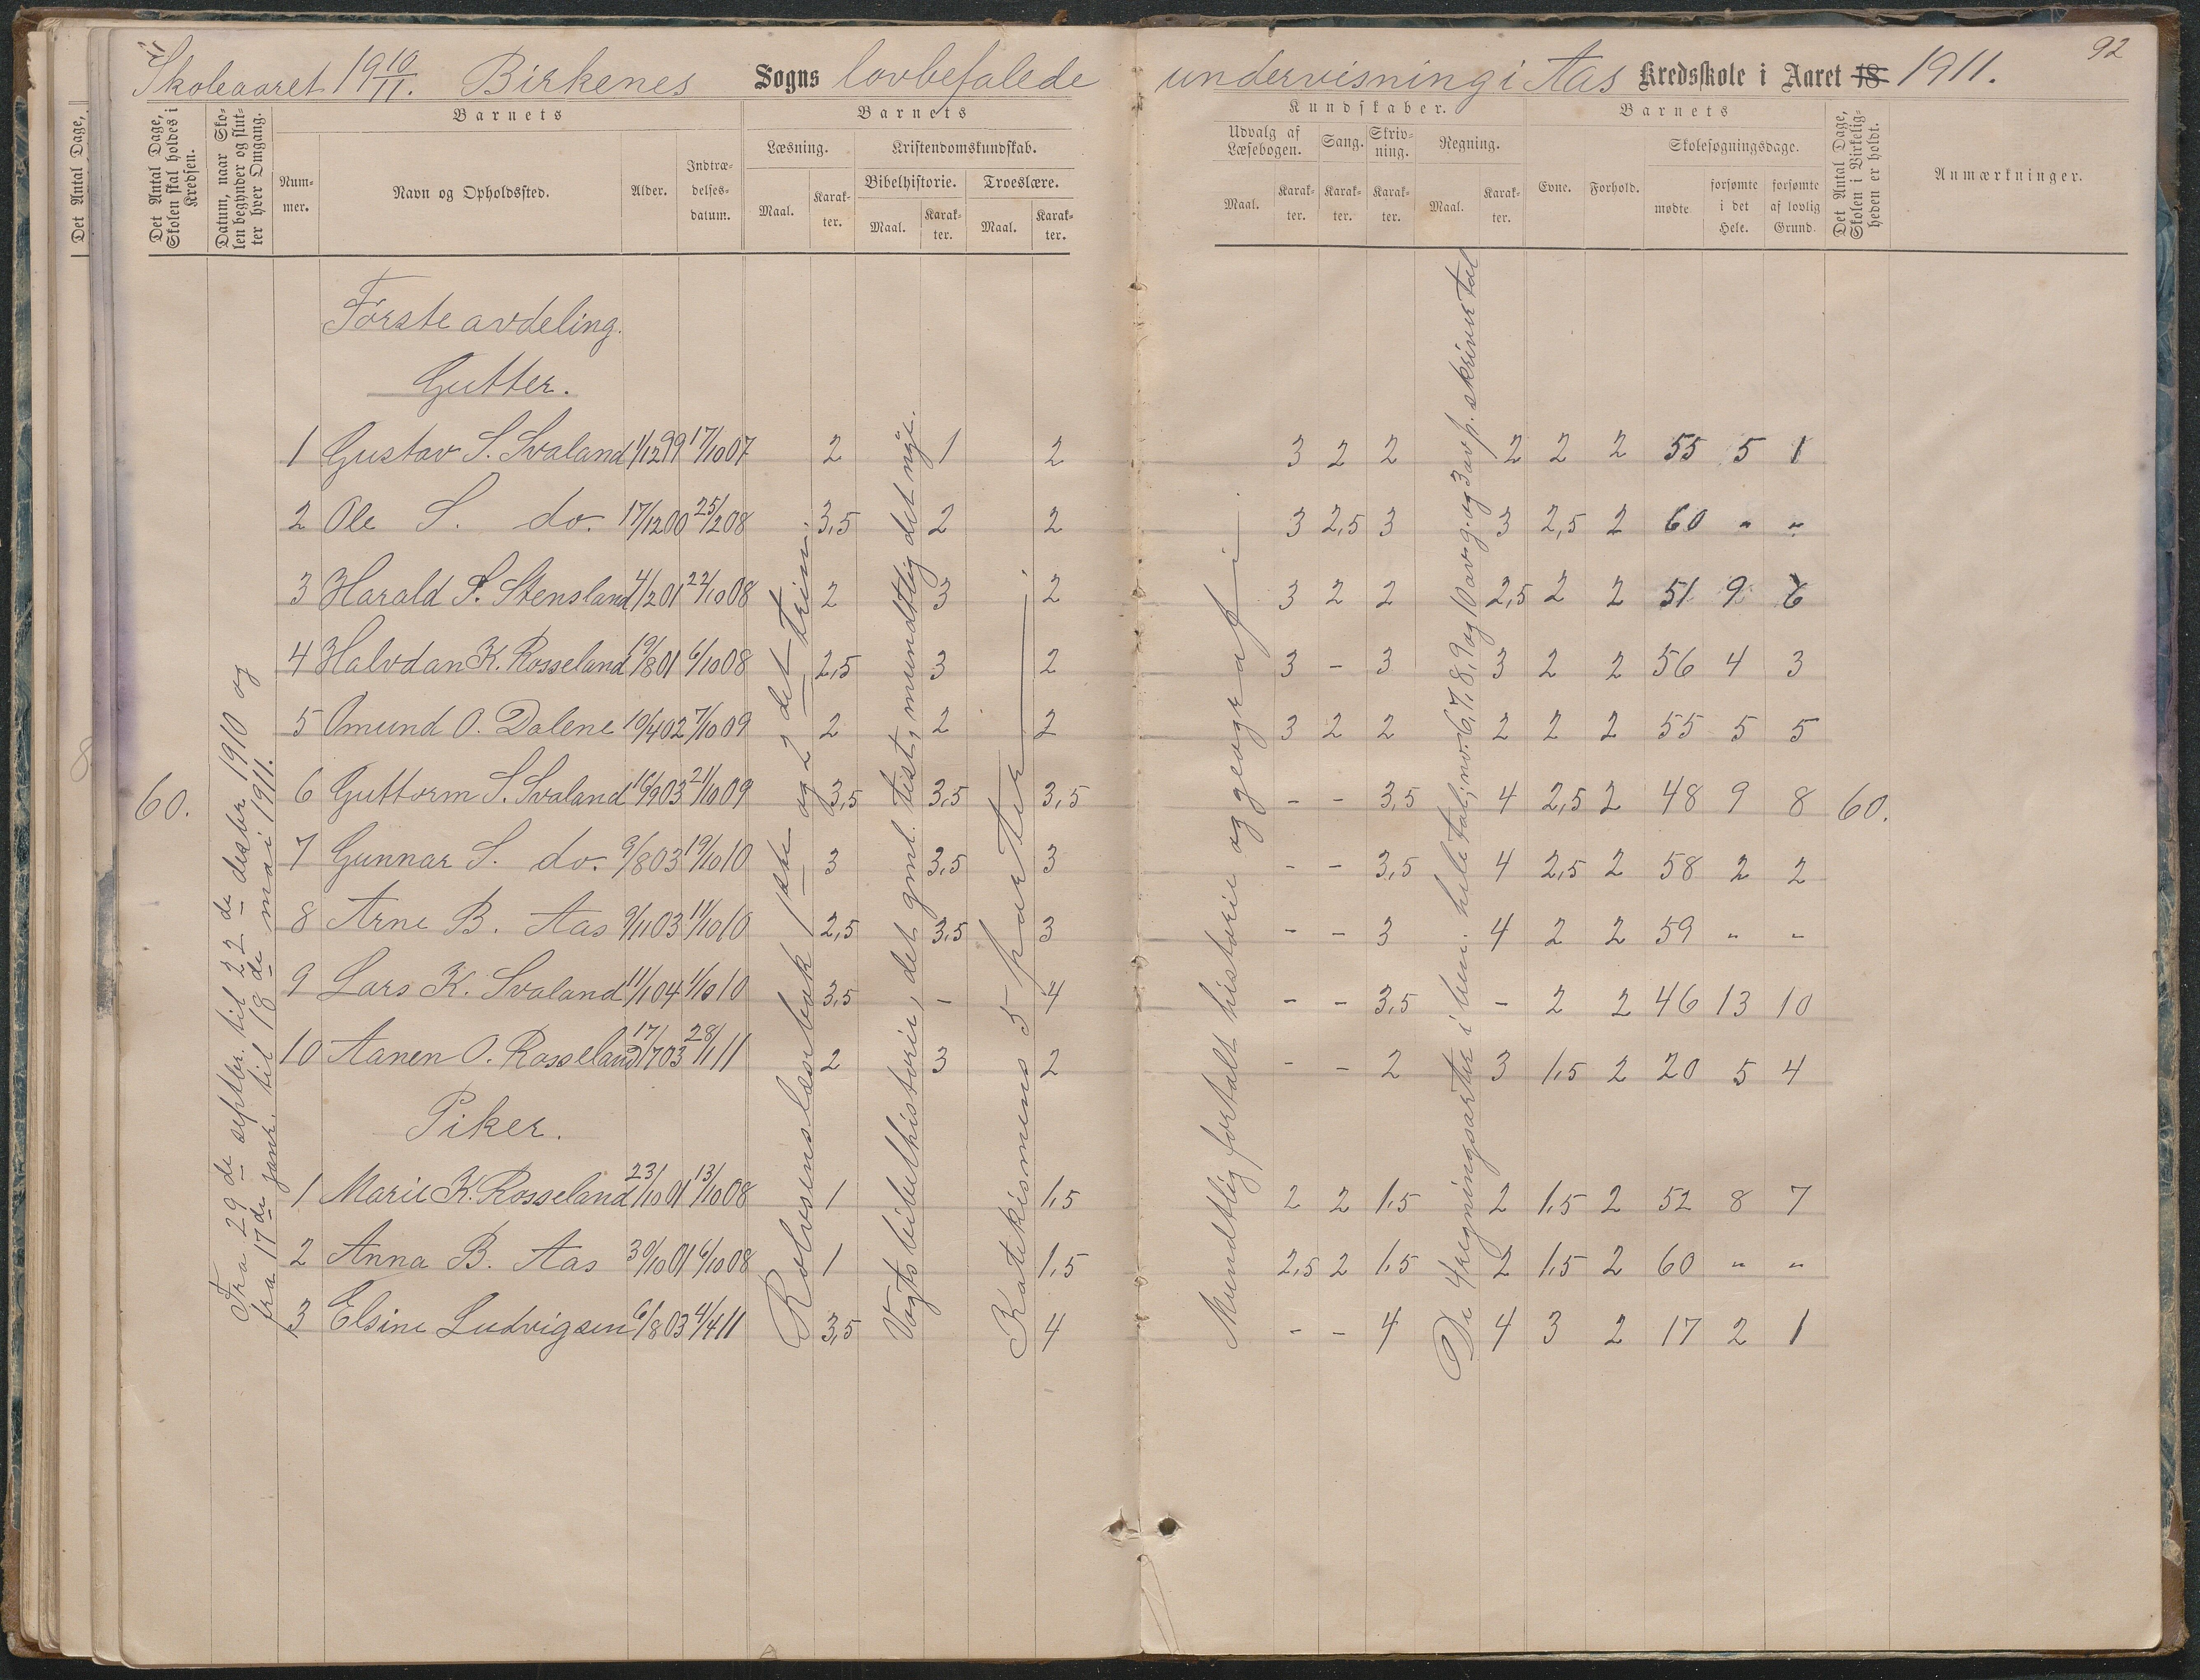 Skoleaaret 19 10/11. Birkenes Sogns lovbefalede undervisning i Aas Kredsskole i Aaret 18 1911. 92
Det Antal Dage,
Det Antal Dage, Skolen skal holdes i Kredsen.
Datum, naar Skolen begynder og slutter hver Omgang.
Barnets
Nummer.
Navn og Opholdssted.
Alder.
Indtrædelsesdatum.
Barnets
Læsning.
Maal.
Karakter.
Kristendomskundskab.
Bibelhistorie.
Maal.
Karakter.
Troeslære.
Maal.
Karakter.
Kundskaber.
Udvalg af Læsebogen.
Maal.
Karakter.
Sang.
Karakter.
Skrivning.
Karakter.
Regning.
Maal.
Karakter.
Barnets
Evne.
Forhold.
Skolesøgningsdage.
mødte
forsømte i det Hele.
forsømte af lovlig Grund.
Det Antal Dage, Skolen i Virkeligheden er holdt.
Anmærkninger.
Første avdeling.
Gutter.
1 Gustav S. Svaland 1/12 99 17/10 07 2 1 2 3 2 2 2 2 2 55 5 1
2 Ole S. do. 17/12 00 25/2 08 3,5 2 2 3 2,5 3 3 2,5 2 60 " "
3 Harald S. Stensland 4/2 01 22/10 08 2 3 2 3 2 2 2,5 2 2 51 9 6
4 Halvdan K. Rosseland 19/8 01 6/10 08 2,5 3 2 3 - 3 3 2 2 56 4 3
5 Omund O. Dalene 10/4 02 7/10 09 2 2 2 3 2 2 2 2 2 55 5 5
60. 6 Guttorm S. Svaland 16/9 03 21/10 09 3,5 3,5 3,5 - - 3,5 4 2,5 2 48 9 8 60.
7 Gunnar S. do. 9/8 03 19/10 10 3 3,5 3 - - 3,5 4 2,5 2 58 2 2
8 Arne B. Aas 9/11 03 11/10 10 2,5 3,5 3 - - 3 4 2 2 59 " "
9 Lars K. Svaland 11/1 04 1/10 10 3,5 - 4 - - 3,5 - 2 2 46 13 10
10 Aanen O. Rosseland 17/7 03 28/1 11 2 3 2 - - 2 3 1,5 2 20 5 4
Piker.
1 Marie K. Rosseland 23/10 01 13/10 08 1 1,5 2 2 1,5 2 1,5 2 52 8 7
2 Anna B. Aas 30/10 01 6/10 08 1 1,5 2,5 2 1,5 2 1,5 2 60 " "
3 Elsine Ludvigsen 6/8 03 4/4 11 3,5 4 - - 4 4 3 2 17 2 1
Fra 29de septbr. til 22de desbr 1910 og
fra 17de janr. til 18de mai 1911.
Rolvsens læsebok 1ste og 2det trin.
Vogts bibelhistorie, det gml. test, mundtlig det nye.
Katekismens 5 parter.
Mundtlig fortalt historie og geografi.
De 4 regningsarter i hele tal; no. 6, 7, 8, 9 og 10 av g. og 3 av p. skrevne tal